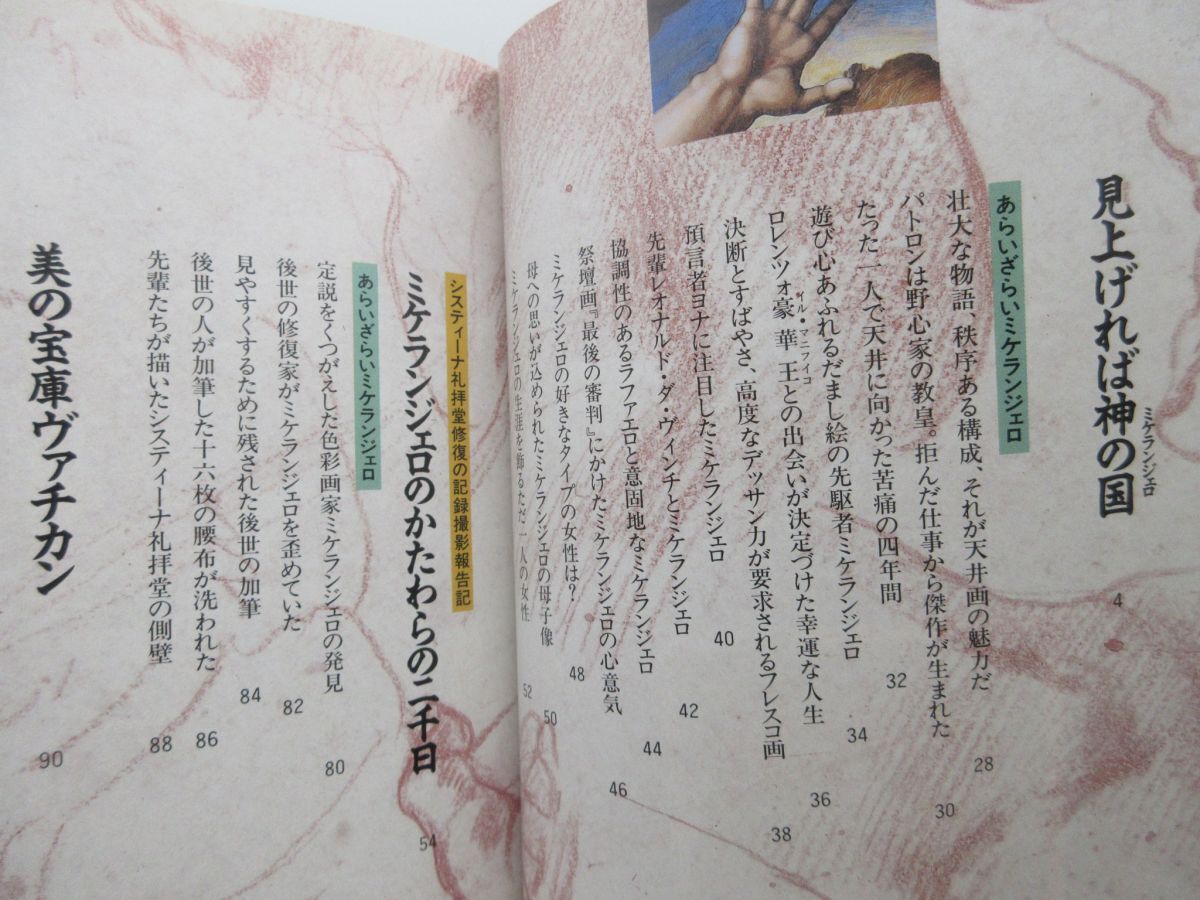 見上げれば神の国
ミケランジェロ
4
あらいざらいミケランジェロ
壮大な物語、秩序ある構成、それが天井画の魅力だ
28
パトロンは野心家の教皇。拒んだ仕事から傑作が生まれた
30
たった一人で天井に向かった苦痛の四年間
32
遊び心あふれるだまし絵の先駆者ミケランジェロ
34
ロレンツォ豪華王との出会いが決定づけた幸運な人生
イル・マニフィイコ
36
決断とすばやさ、高度なデッサン力が要求されるフレスコ画
38
預言者ヨナに注目したミケランジェロ
40
先輩レオナルド・ダ・ヴィンチとミケランジェロ
42
協調性のあるラファエロと意固地なミケランジェロ
44
祭壇画『最後の審判』にかけたミケランジェロの心意気
46
ミケランジェロの好きなタイプの女性は?
48
母への思いが込められたミケランジェロの母子像
50
ミケランジェロの生涯を飾るただ一人の女性
52
システィーナ礼拝堂修復の記録撮影報告記
ミケランジェロのかたわらの二千日
54
あらいざらいミケランジェロ
定説をくつがえした色彩画家ミケランジェロの発見
80
後世の修復家がミケランジェロを歪めていた
82
見やすくするために残された後世の加筆
84
後世の人が加筆した十六枚の腰布が洗われた
86
先輩たちが描いたシスティーナ礼拝堂の側壁
88
美の宝庫ヴァチカン
90